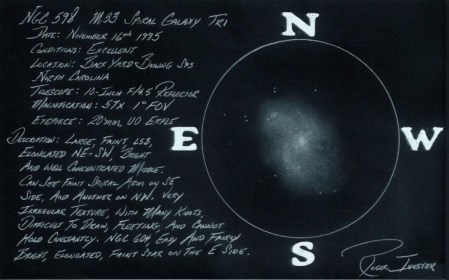 NGC 598 M33 Spiral Galaxy Tri
Date: November 16th 1995
Conditions: Excellent
Location: Back Yard Boiling Sps
North Carolina
Telescope: 10-Inch F/4.5 Reflector
Magnification: 57X 1° FOV
Eyepiece: 20mm UO Erfle
Description: Large, Faint, LSB,
Elongated NE-SW, Bright
And Well Concentrated Middle.
Can See Faint Spiral Arm on SE
Side, And Another on NW. Very
Irregular Texture, With Many Knots.
Difficult To Draw, Fleeting, And Cannot
Hold Constantly. NGC 604 Easy And Fairly
Bright, Elongated, Faint Star on the E Side.
N
E
W
S